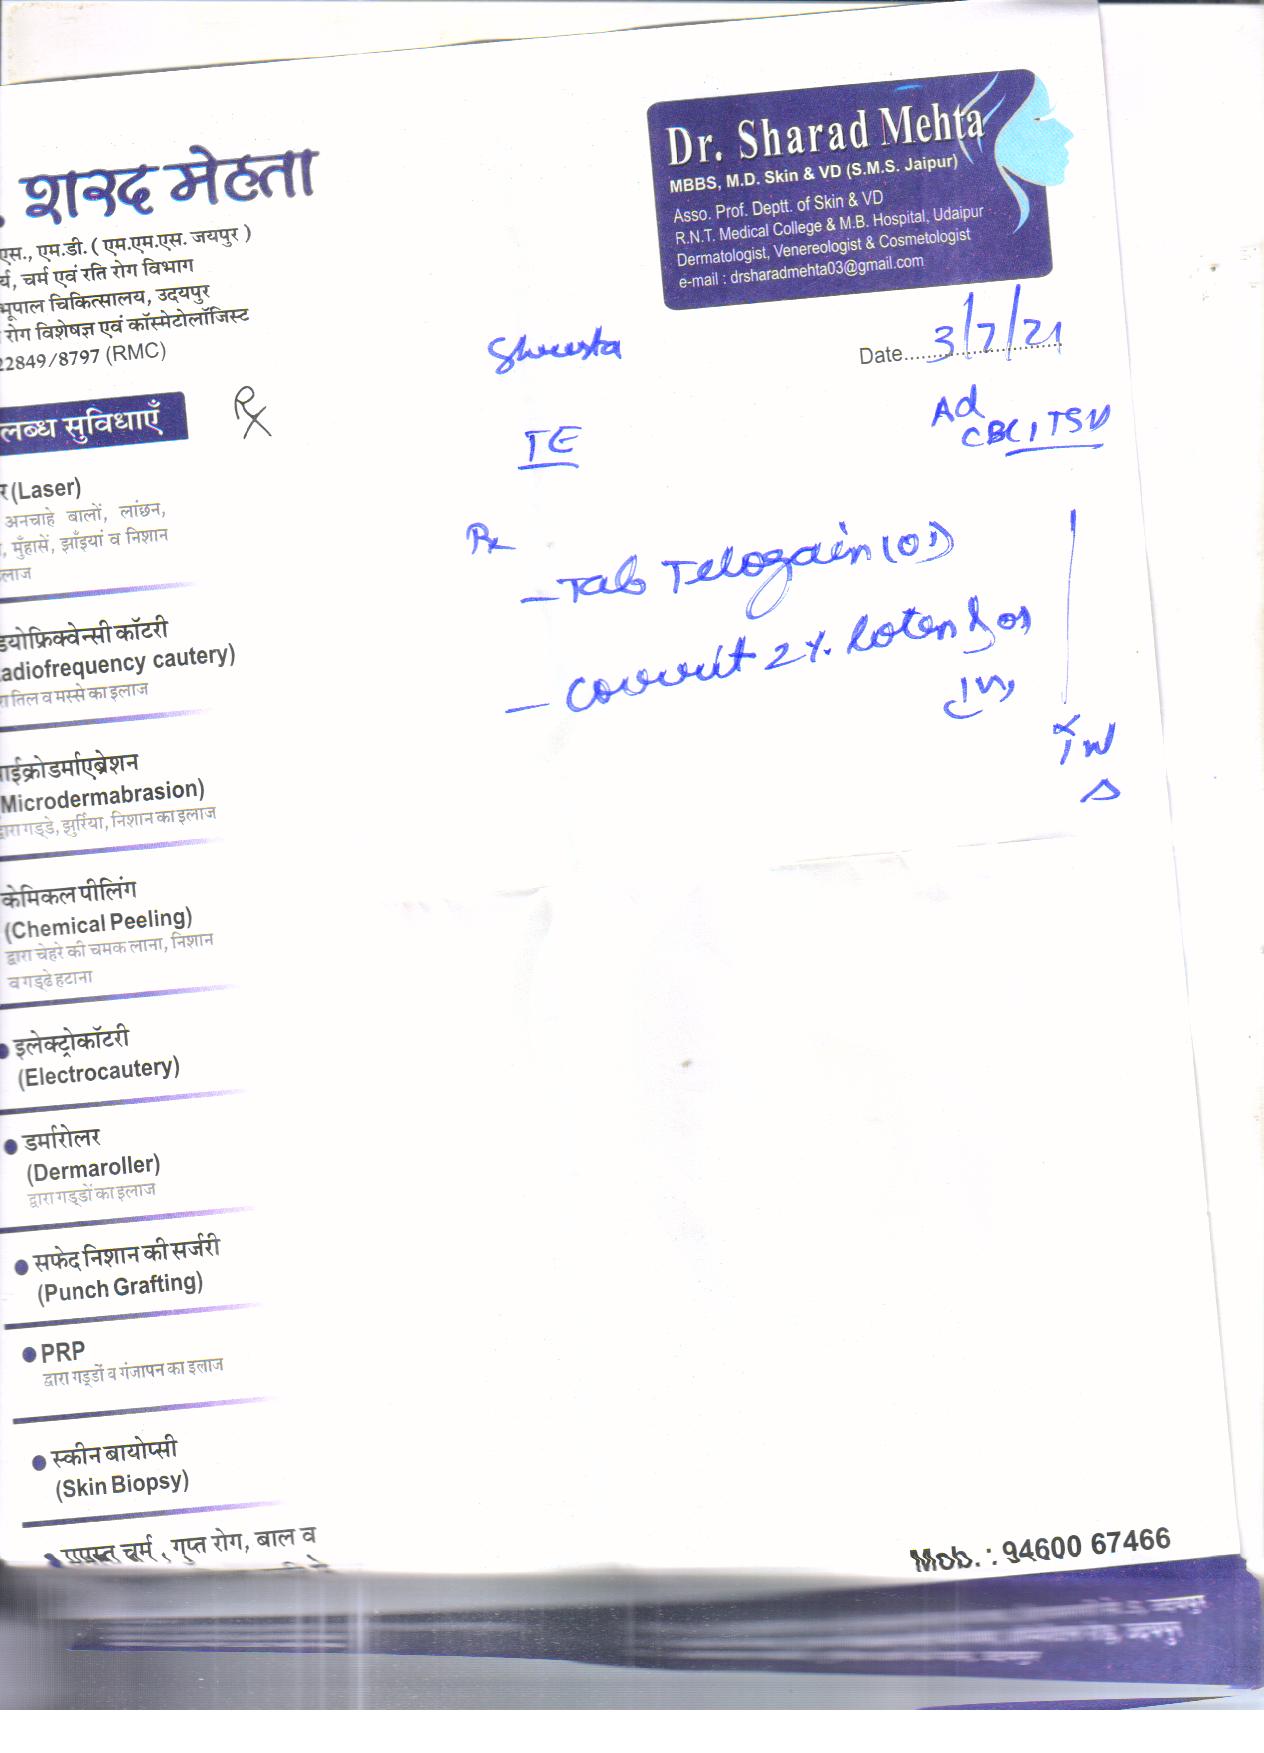 . शरद मेहता
एस., एम.डी. ( एम.एम.एस. जयपुर )
र्य, चर्म एवं रति रोग विभाग
भूपाल चिकित्सालय, उदयपुर
रोग विशेषज्ञ एवं कॉस्मेटोलॉजिस्ट
22849/8797 (RMC)
Dr. Sharad Mehta
MBBS, M.D. Skin & VD (S.M.S. Jaipur)
Asso. Prof. Deptt. of Skin & VD
R.N.T. Medical College & M.B. Hospital, Udaipur
Dermatologist, Venereologist & Cosmetologist
e-mail : drsharadmehta03@gmail.com
Date.... 3/7/21
Rx
TE
Ad
CBC, TSH
Rx
- Tab Telogain (OD)
- 2%. lotion
लब्ध सुविधाएँ
र (Laser)
अनचाहे बालों, लांछन,
, मुँहासें, झाँइयां व निशान
लाज
डयोफ्रिक्वेन्सी कॉटरी
adiofrequency cautery)
रा तिल व मस्से का इलाज
ाईक्रोडर्माएब्रेशन
(Microdermabrasion)
द्वारा गड्डे, झुर्रिया, निशान का इलाज
केमिकल पीलिंग
(Chemical Peeling)
द्वारा चेहरे की चमक लाना, निशान
व गड्ढे हटाना
इलेक्ट्रोकॉटरी
(Electrocautery)
डर्मारोलर
(Dermaroller)
द्वारा गड्डों का इलाज
सफेद निशान की सर्जरी
(Punch Grafting)
PRP
द्वारा गड्डों व गंजापन का इलाज
स्कीन बायोप्सी
(Skin Biopsy)
समस्त चर्म , गुप्त रोग, बाल व
Mob. : 94600 67466